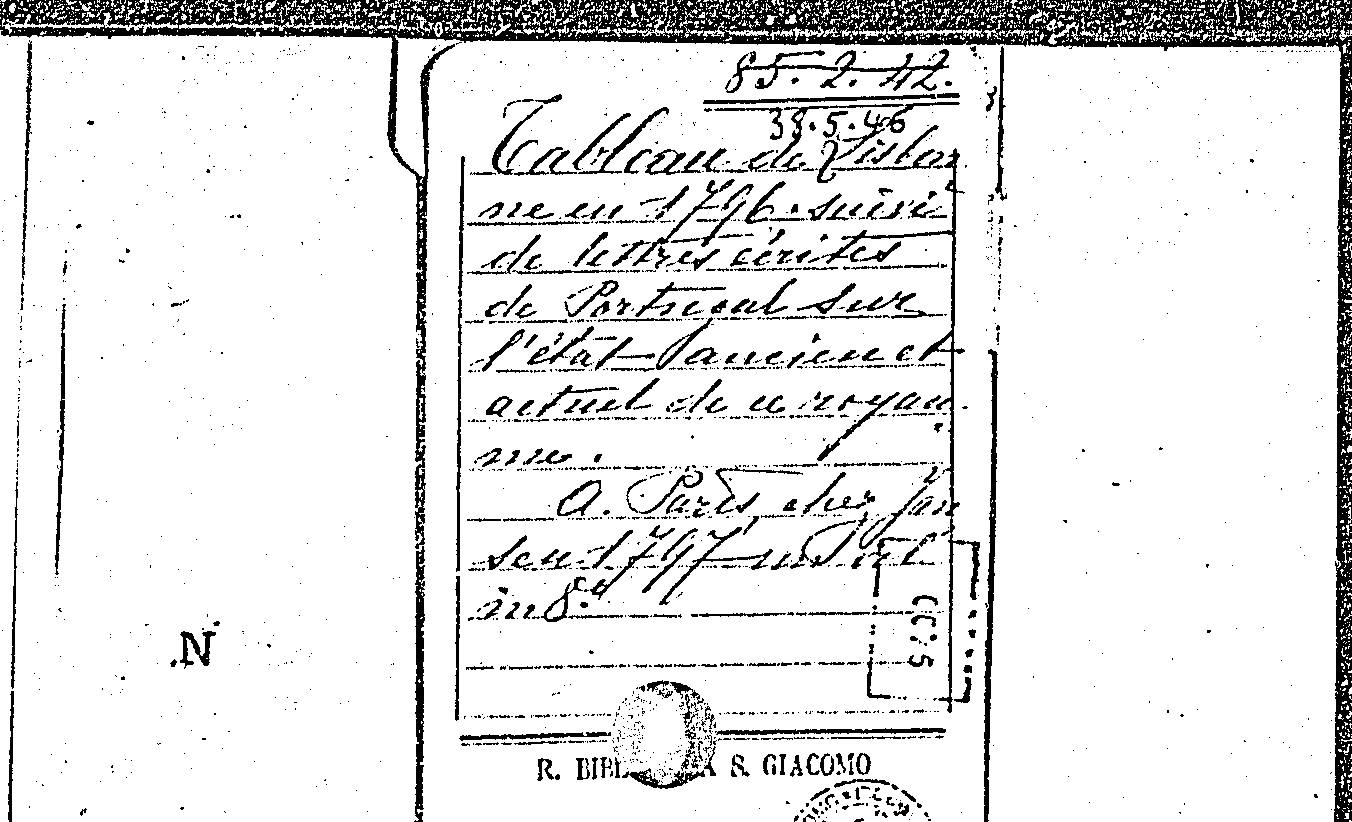 85.2.42.
38.5.46
Tableau de Lisbon
ne en 1796. suivi
de lettres écrites
de Portugal sur
l'état ancien et
actuel de ce royau
me.
A. Paris chez Jan
sen 1797
in 8.º
N
R. BIBL A S. GIACOMO